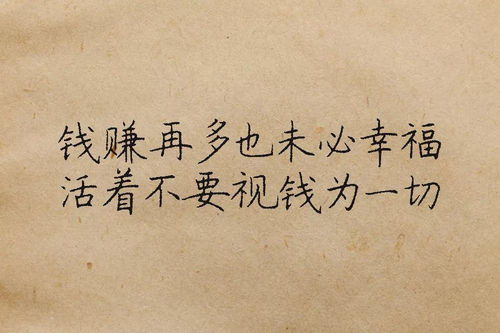 钱赚再多也未必幸福
活着不要视钱为一切